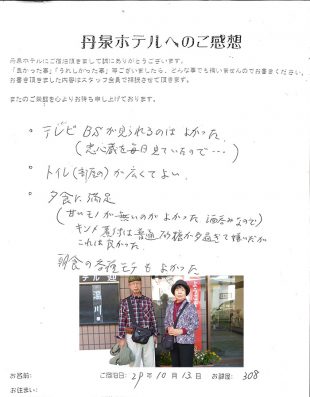 丹泉ホテルへのご感想
丹泉ホテルにご宿泊頂きまして誠にありがとうございます。
「良かった事」「うれしかった事」等ございましたら、どんな事でも構いませんのでお書きください。
お書き頂きました内容はスタッフ全員で拝読させて頂きます。
またのご来館を心よりお待ち申し上げております。
○ テレビ BSが見られるのはよかった
(忠心蔵を毎日見ていたので…)
○ トイレ(部屋の)が広くてよい
○ 夕食に満足
(甘いモノが無いのがよかった 酒呑みなので)
キンメ煮付は普通砂糖が多過ぎて嫌いだが
これは良かった
朝食の も よかった
湯川
お名前:
ご宿泊日: 29 年 10 月 13 日
お部屋: 308
お住まい: